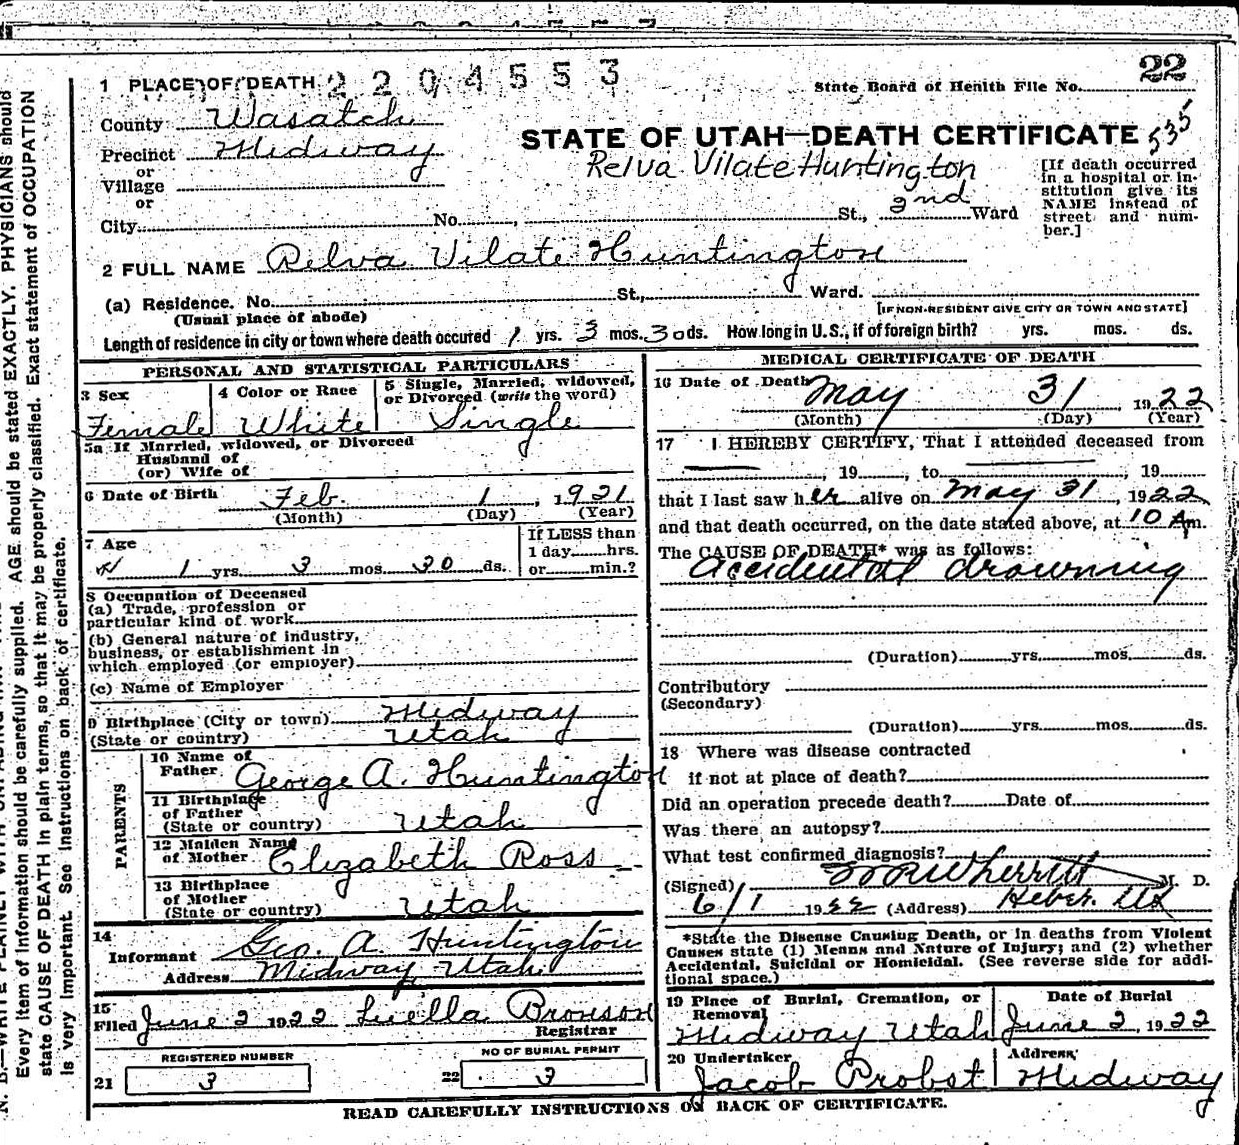 22
1 PLACE OF DEATH 2204553
State Board of Health File No.
County Wasatch
535
STATE OF UTAH—DEATH CERTIFICATE
Precinct Midway
or
Village
or
Relva Vilate Huntington
[If death occurred in a hospital or in-
stitution give its
NAME instead of
street and num-
ber.]
City No. , St., 2nd Ward
2 FULL NAME Relva Vilate Huntington
(a) Residence. No. St., Ward.
(Usual place of abode)
[IF NON-RESIDENT GIVE CITY OR TOWN AND STATE]
Length of residence in city or town where death occured 1 yrs. 3 mos. 30 ds. How long in U.S., if of foreign birth? yrs. mos. ds.
PERSONAL AND STATISTICAL PARTICULARS
3 Sex
Female
4 Color or Race
White
5 Single, Married, widowed,
or Divorced (write the word)
Single
5a If Married, widowed, or Divorced
Husband of
(or) Wife of
6 Date of Birth Feb. 1, 1921
(Month) (Day) (Year)
7 Age
1 yrs. 3 mos. 30 ds.
If LESS than
1 day hrs.
or min.?
8 Occupation of Deceased
(a) Trade, profession or
particular kind of work
(b) General nature of industry,
business, or establishment in
which employed (or employer)
(c) Name of Employer
9 Birthplace (City or town) Midway
(State or country) Utah
PARENTS
10 Name of
Father George A. Huntington
11 Birthplace
of Father
(State or country) Utah
12 Maiden Name
of Mother Elizabeth Ross
13 Birthplace
of Mother
(State or country) Utah
14
Informant Geo. A Huntington
Address Midway Utah
15
Filed June 2 1922 Luella Bronson
Registrar
REGISTERED NUMBER
21 3
NO OF BURIAL PERMIT
22 3
MEDICAL CERTIFICATE OF DEATH
16 Date of Death May 31, 1922
(Month) (Day) (Year)
17 I HEREBY CERTIFY, That I attended deceased from
, 19 , to , 19
that I last saw her alive on May 31, 1922
and that death occurred, on the date stated above, at 10 Am.
The CAUSE OF DEATH* was as follows:
Accidental drowning
(Duration) yrs. mos. ds.
Contributory
(Secondary)
(Duration) yrs. mos. ds.
18 Where was disease contracted
if not at place of death?
Did an operation precede death? Date of
Was there an autopsy?
What test confirmed diagnosis?
(Signed) Wherritt M. D.
6/1 1922 (Address) Heber. Ut
*State the Disease Causing Death, or in deaths from Violent
Causes state (1) Means and Nature of Injury; and (2) whether
Accidental, Suicidal or Homicidal. (See reverse side for addi-
tional space.)
19 Place of Burial, Cremation, or
Removal
Midway Utah
Date of Burial
June 2, 1922
20 Undertaker
Jacob Probst
Address
Midway
READ CAREFULLY INSTRUCTIONS ON BACK OF CERTIFICATE.
Every item of information should be carefully supplied. AGE should be stated EXACTLY. PHYSICIANS should
state CAUSE OF DEATH in plain terms, so that it may be properly classified. Exact statement of OCCUPATION
is very important. See instructions on back of certificate.